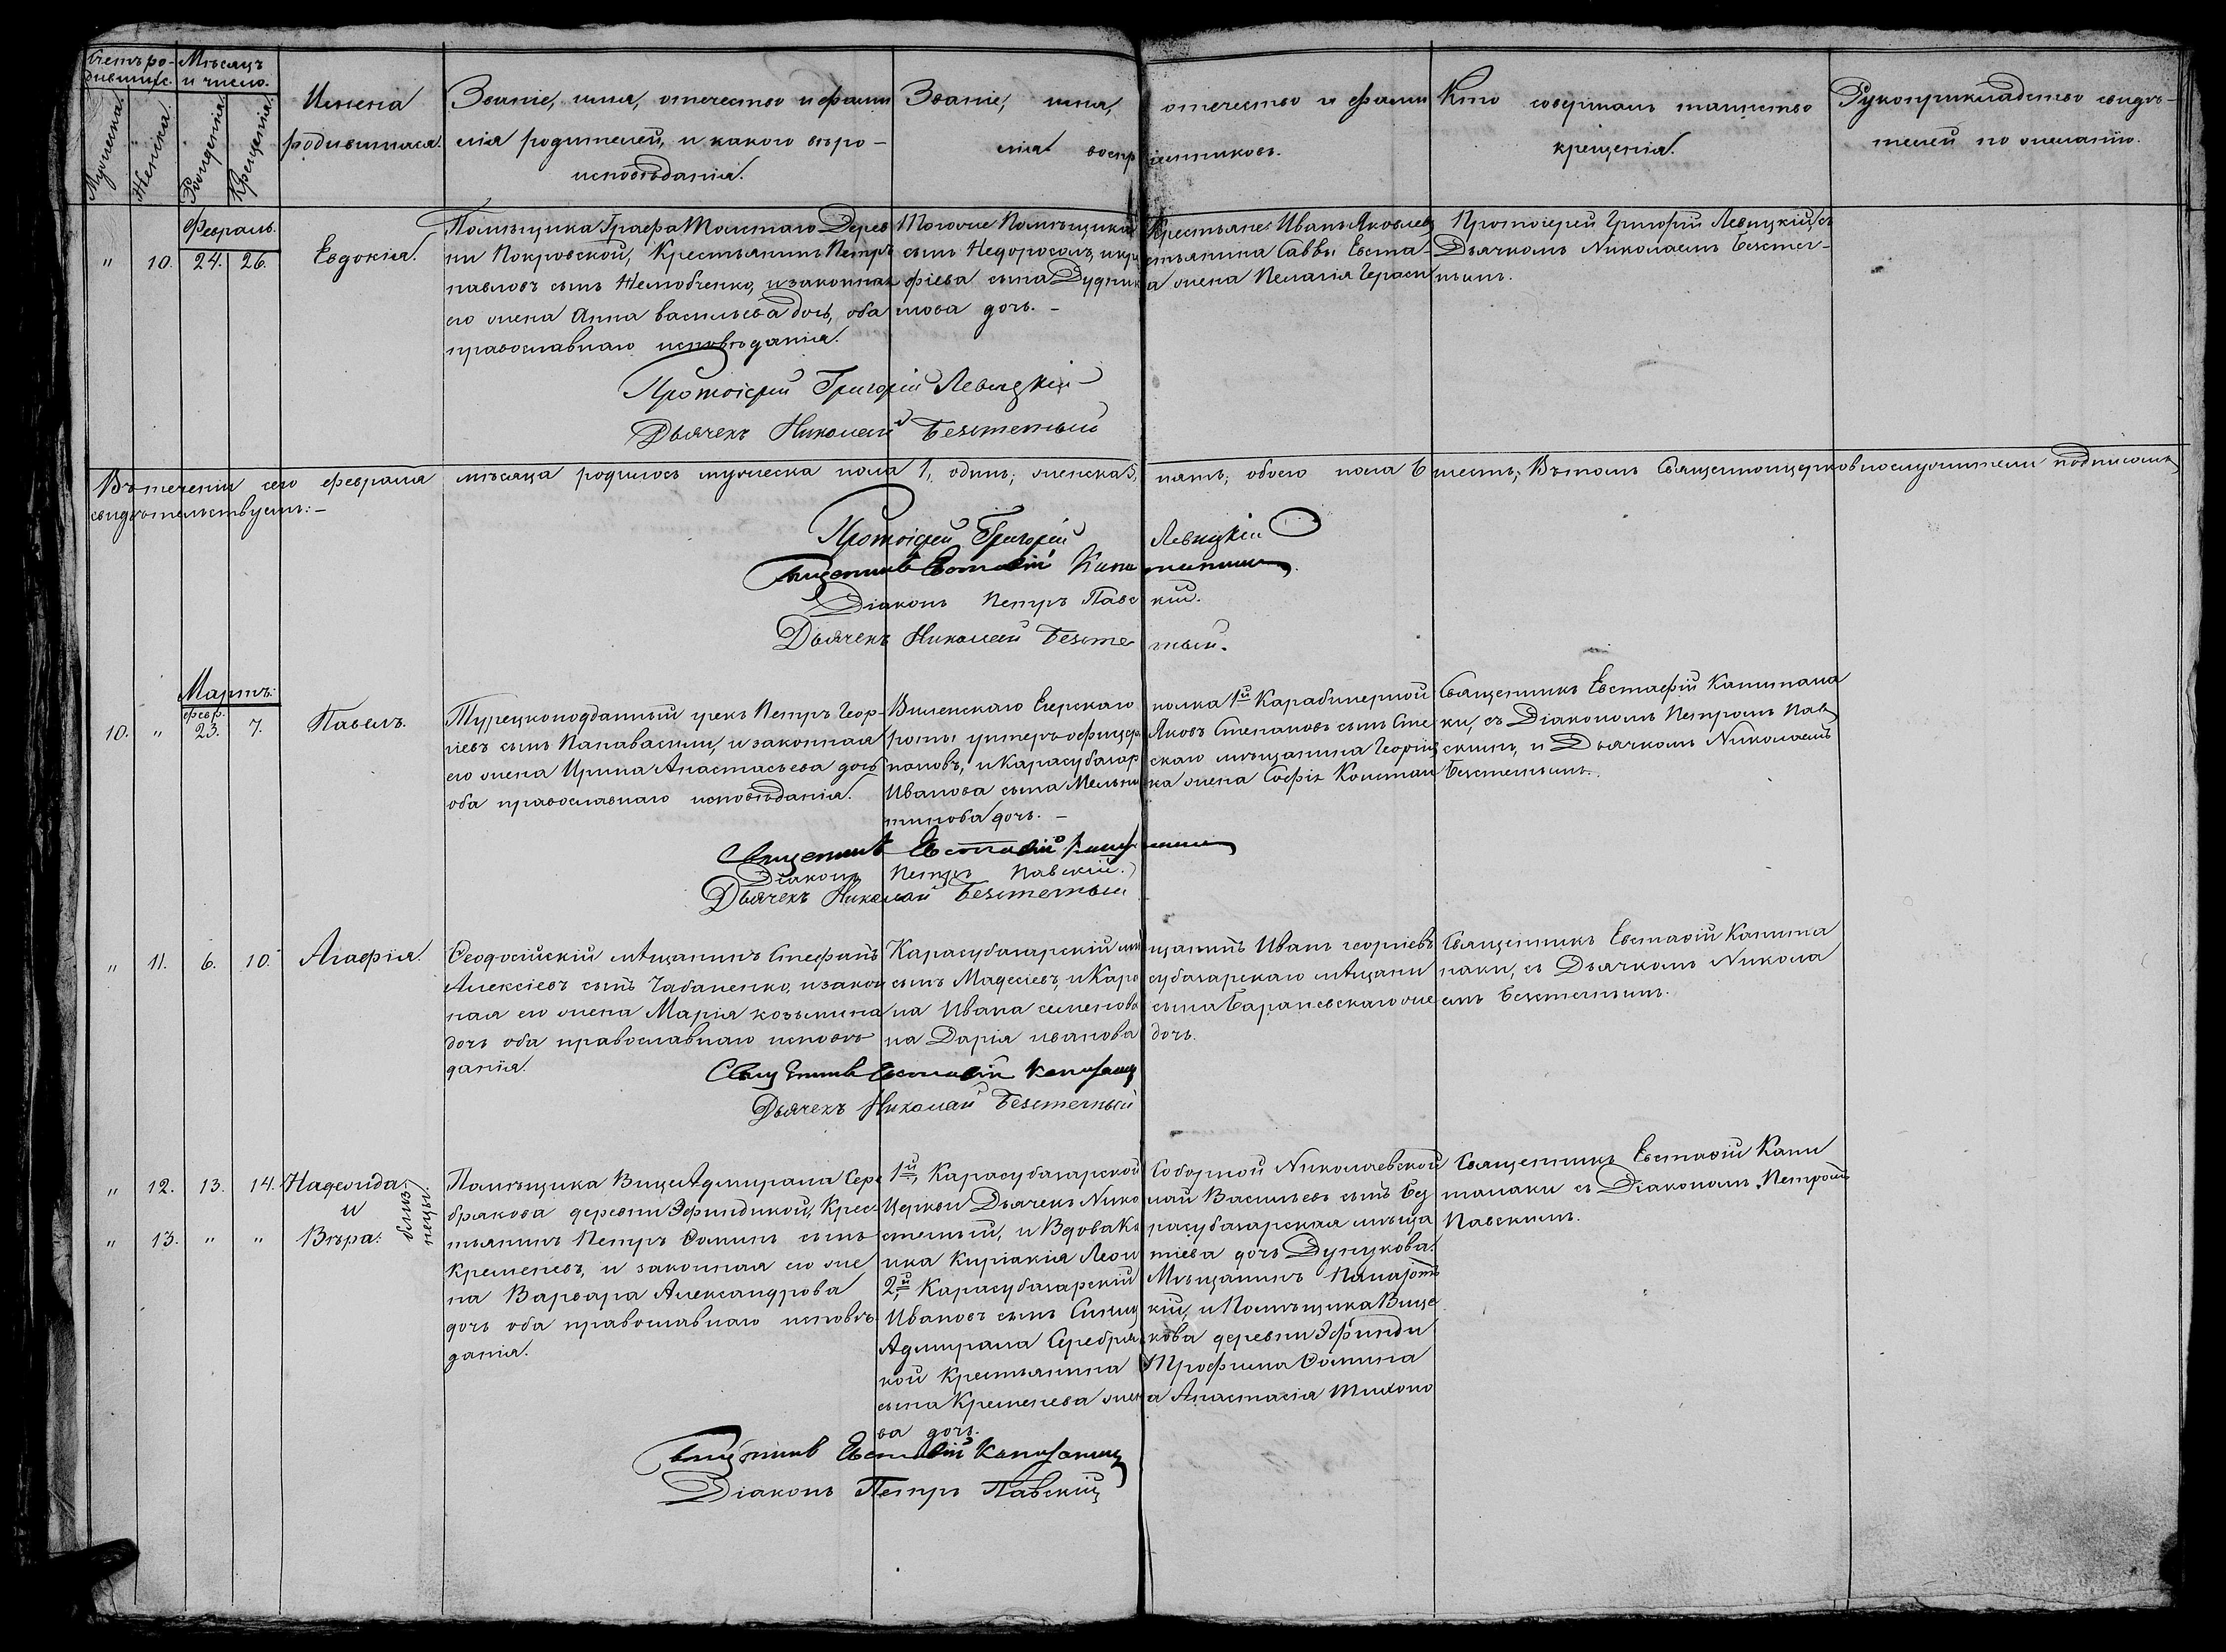 Счетъ ро-
дившихс.
Мѣсяцъ
и число.
Мужеска.
Женска.
Рожденія.
Крещенія.
Имена
родившихся.
Званіе, имя, отечество и фами
лія родителей, и какого вѣро-
исповѣданія.
Званіе, имя, отечество и фами
лія воспріемниковъ.
Кто совершалъ таинство
крещенія.
Рукоприкладство свидѣ-
телей по желанію.
Февраль.
" 10. 24. 26. Евдокія.
Помѣщика Графа Толстаго Дерев
ни Покровской, Крестьянинъ Петръ
павловъ сынъ Желобченко, и законная
его жена Анна васильева дочь, оба
православнаго исповѣданія.
Тогоже Помѣщика Крестьяне: Иванъ Яковлевъ
сынъ Недоросолъ, и кре стьянина Саввы Евста-
фіева сына Дудник а жена Пелагія Гераси
мова дочь. -
Протоіерей Григорій Левицкій, съ
Дьячкомъ Николаемъ Безстет-
нымъ.
Протоіерей Григорій Левицкій
Дьячекъ Николай Безстетный
Въ теченіи сего февраля мѣсяца родилось мужеска пола 1, одинъ; женска 5, пять; обоего пола 6 шесть; Въ томъ Священноцерковнослужители подписомъ
свидѣтельствуемъ: -
Протоіерей Григорій Левицкій
Священникъ Евстафій Капитанаки.
Діаконъ Петръ Павскій.
Дьячекъ Николай Безстетный.
Мартъ:
февр.
10. " 23. 7. Павелъ.
Турецкоподданный грекъ Петръ Геор-
гіевъ сынъ Папавасили, и законная
его жена Ирина Анастасьева дочь
оба православнаго исповѣданія.
Виленскаго Егерскаго полка 1й Карабинерной
роты унтеръ-офицеръ Яковъ Степановъ сынъ Сте
пановъ, и Карасубазар скаго мѣщанина Георгія
Иванова сына Мельни ка жена Софія Констан
тинова дочь. -
Священникъ Евстафій Капитана
ки, съ Діакономъ Петромъ Пав
скимъ, и Дьячкомъ Николаемъ
Безстетнымъ.
Священникъ Евстафій Капитанаки
Діаконъ Петръ Павскій.
Дьячекъ Николай Безстетный
" 11. 6. 10. Агафія.
Ѳеодосійскій мѣщанинъ Стефанъ
Алексіевъ сынъ Чабаненко, и закон
ная его жена Марія козьмина
дочь оба православнаго исповѣ
данія.
Карасубазарскій мѣ щанинъ Иванъ георгіевъ
сынъ Мадесіевъ, и Кара субазарскаго мѣщани
на Ивана семенова сына Барановскаго же
на Дарія иванова дочь.
Священникъ Евстафій Капита
наки, съ Дьячкомъ Никола
емъ Безстетнымъ.
Священникъ Евстафій Капитанаки
Дьячекъ Николай Безстетный
" 12. 13. 14. Надежда
и
" 13. " " Вѣра.
близ
нецы.
Помѣщика ВицеАдмирала Сере
брякова деревни Эфиндикой, Крес-
тьянинъ Петръ Ѳоминъ сынъ
Кременевъ, и законная его же
на Варвара Александрова
дочь оба православнаго исповѣ-
данія.
1й, Карасубазарской Соборной Николаевской
Церкви Дьячекъ Нико лай Васильевъ сынъ Без
стетный, и Вдова Ка расубазарская мѣща
нка Киріакія Леон тіева дочь Дунукова.
2й, Карасубазарскій Мѣщанинъ Панаіотъ
Ивановъ сынъ Синиц кій, и Помѣщика Вице
Адмирала Серебря кова деревни Эфинди
кой Крестьянина Трофима Ѳомина
сына Кременева жен а Анастасія Тихоно
ва дочь.
Священникъ Евстафій Капи
танаки съ Діакономъ Петромъ
Павскимъ.
Священникъ Евстафій Капитанаки
Діаконъ Петръ Павскій